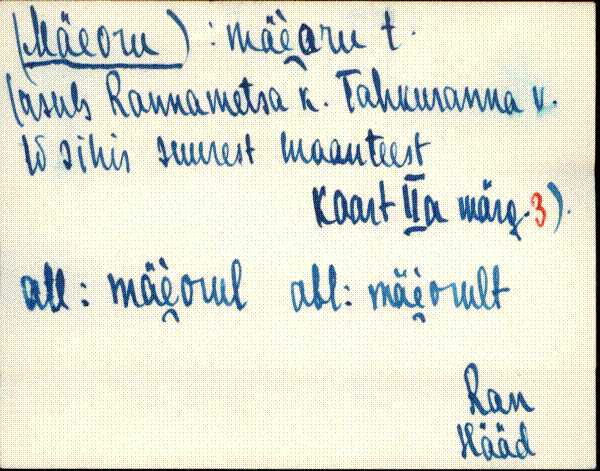 (Mäeoru) : mäe̯òru t.
(asub Rannametsa k. Tahkuranna v.
lõ sihis suurest maanteest
Kaart IIa märg. 3).
all : mäè̯orul abl : mäè̯orult
Ran
Hääd